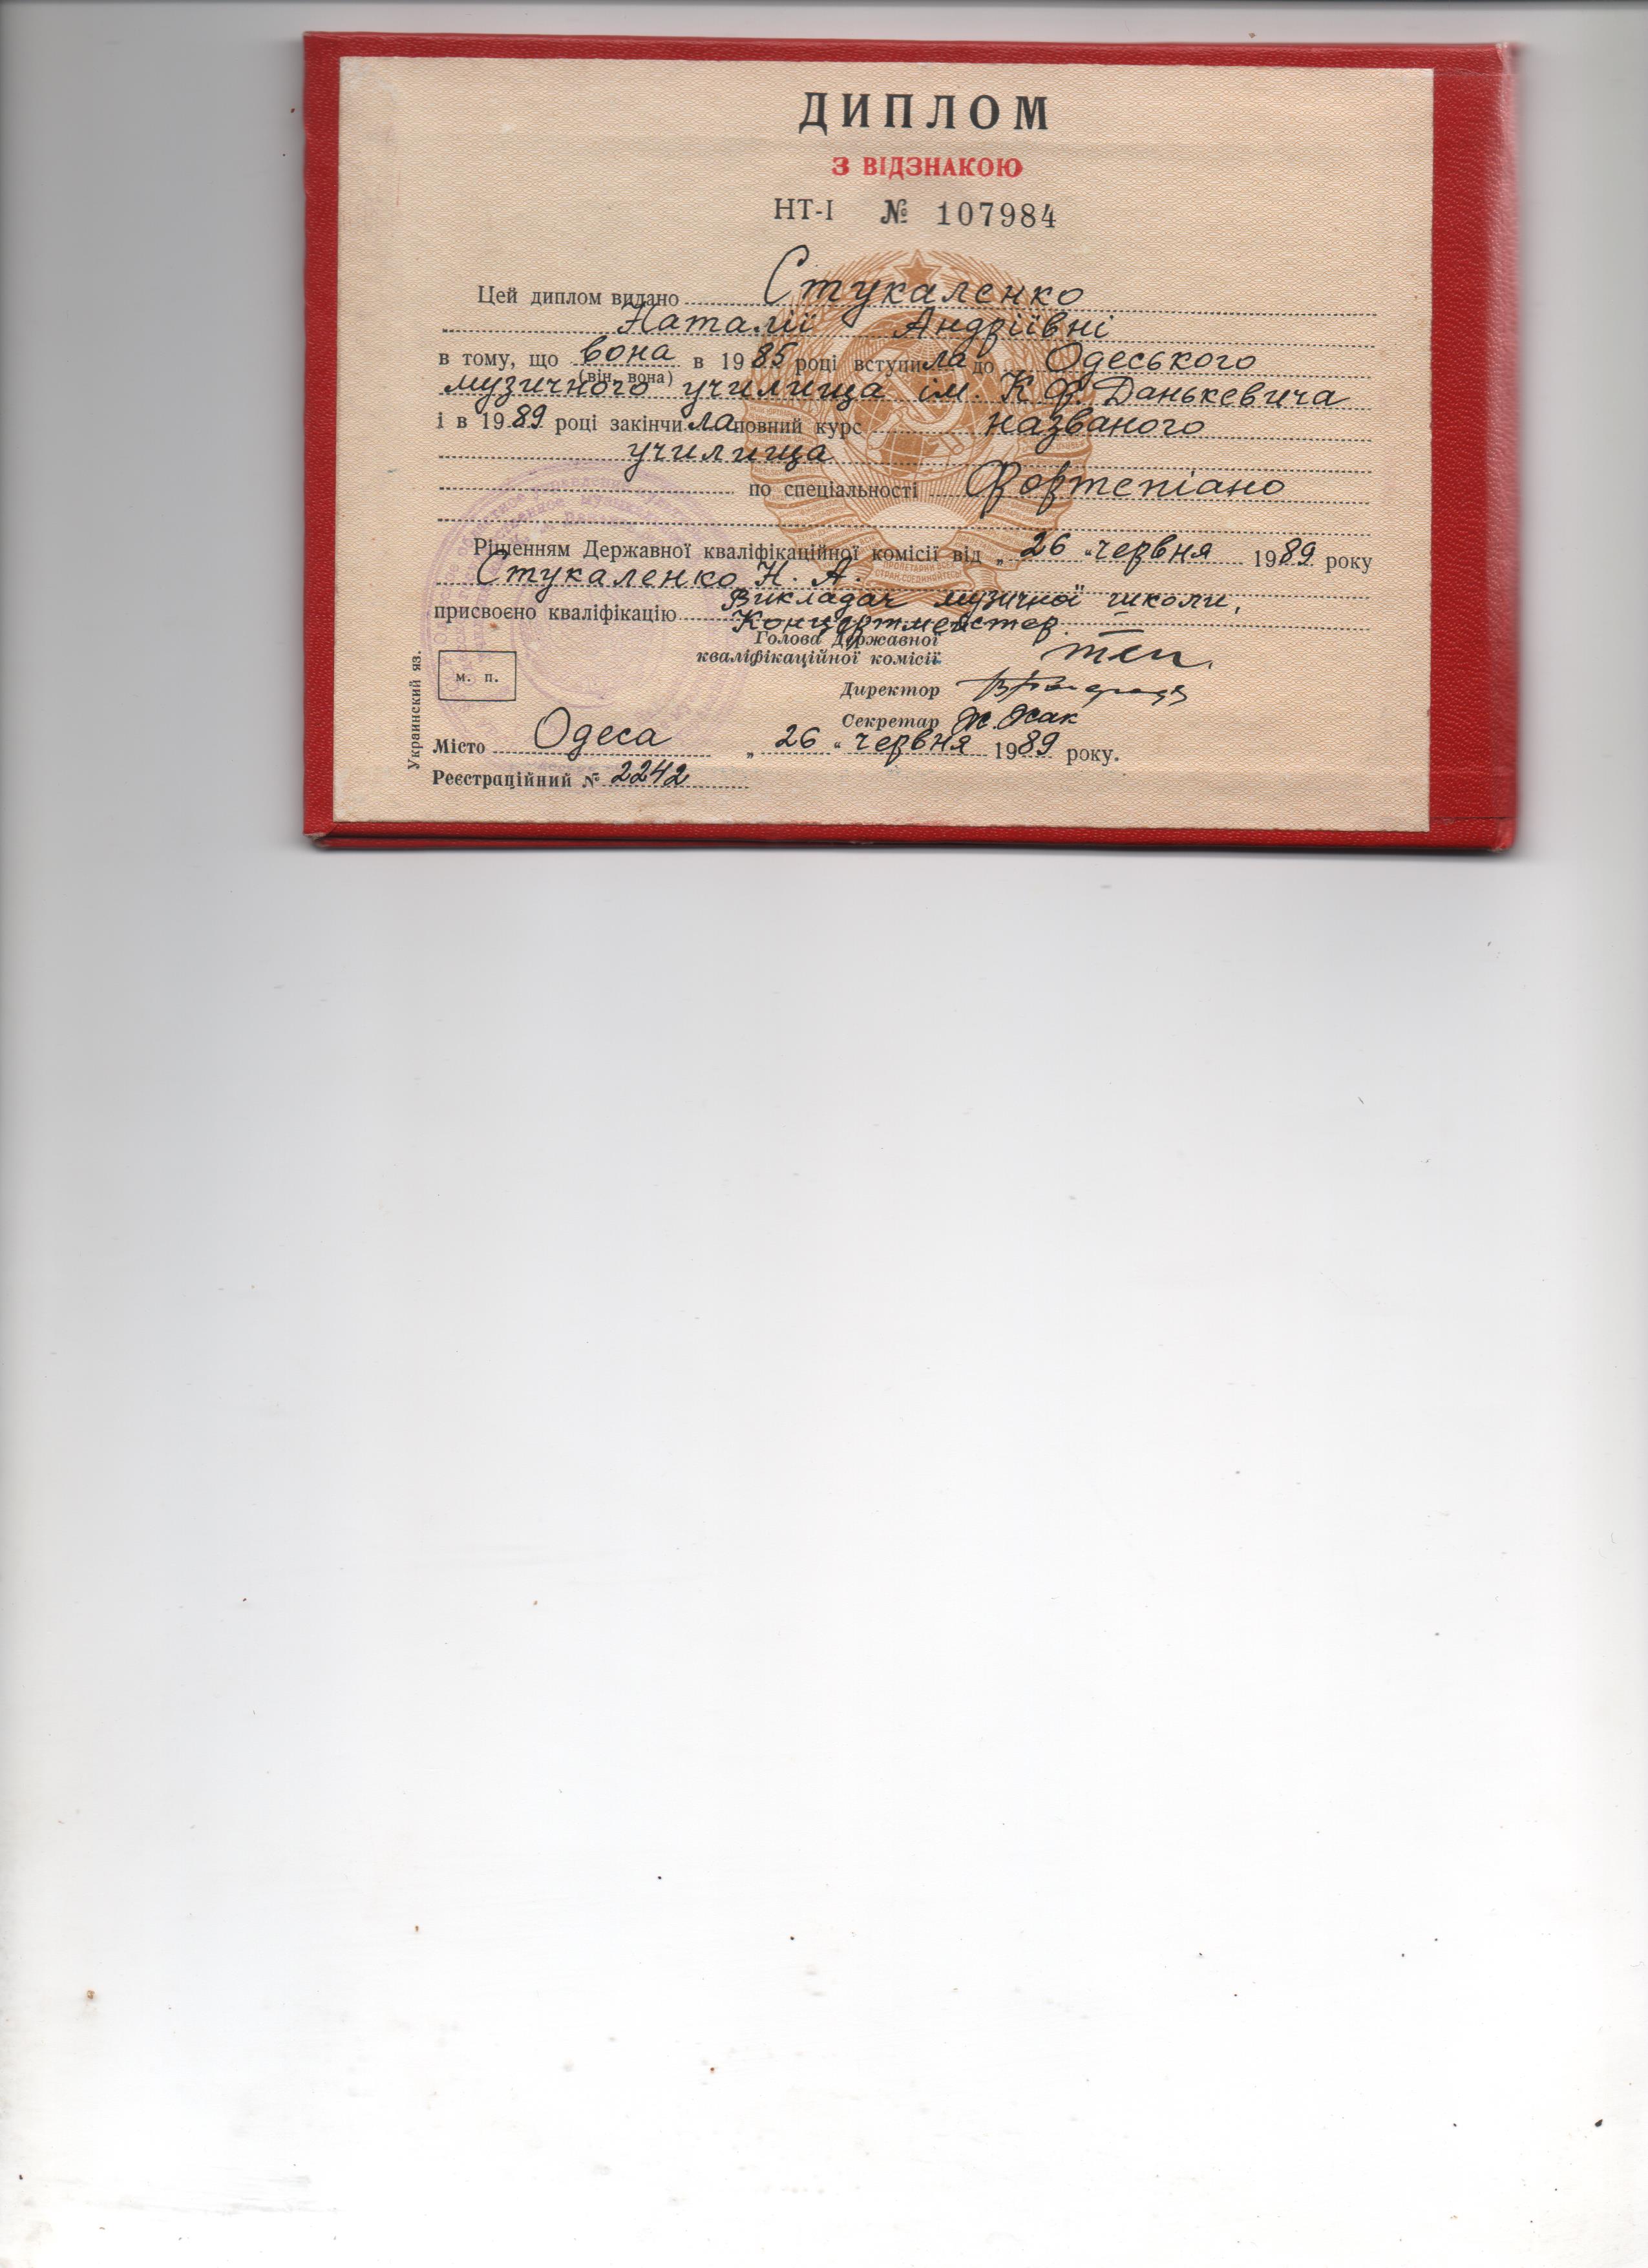 ДИПЛОМ
З ВІДЗНАКОЮ
НТ-I № 107984
Цей диплом видано Стукаленко
Наталії Андріївні
в тому, що вона в 1985 році вступила до Одеського
(він, вона)
музичного училища ім. К. Ф. Данькевича
і в 1989 році закінчила повний курс названого
училища
по спеціальності Фортепіано
Рішенням Державної кваліфікаційної комісії від „26" червня 1989 року
Стукаленко Н. А.
присвоєно кваліфікацію Викладач музичної школи,
Концертмейстер.
Голова Державної
кваліфікаційної комісії
м. п.
Директор
Секретар
Місто Одеса „26" червня 1989 року.
Реєстраційний № 2242
Украинский яз.
ПРОЛЕТАРИИ ВСЕХ
СТРАН, СОЕДИНЯЙТЕСЬ!